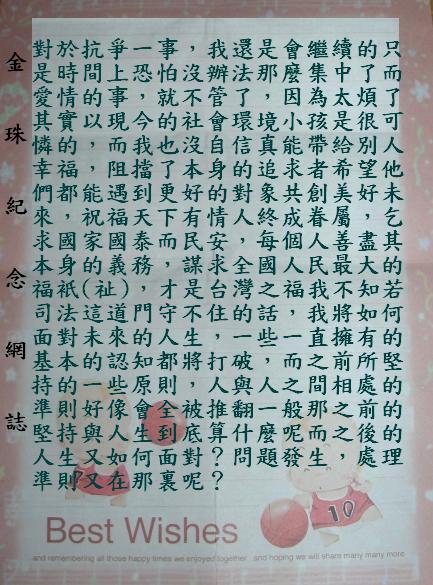 金珠紀念網誌
對於抗爭一事,我還是會繼續的只
是時間上恐怕沒辦法那麼集中了而
愛情的事,就不管了,因為太煩了
其實以現今的社會環境小孩是很可
憐的,而我也沒自信真能帶給別人
幸福,阻擋了本身的追求者希望他
們都能遇到更好的對象共創美好未
來,祝福天下有情人終成眷屬,乞
求國家國泰民安,每個人民善盡其
本身的義務,而謀求國人民最大的
福祇(祉),才是台灣之福,我不知若
司法這道門守不住的話,我將如何
面對未來的人生,一些一直擁有的
基本的認知都將打破,而之前所堅
持的一些原則,人與人之間相處的
準則好像會全被推翻一般那之前的
堅持與人生到底算什麼呢?而之後
人生又如何面對?問題發生,處理
準則又在那裏呢?
Best Wishes
and remembering all those happy times we enjoyed together...and hoping we will share many many more
10